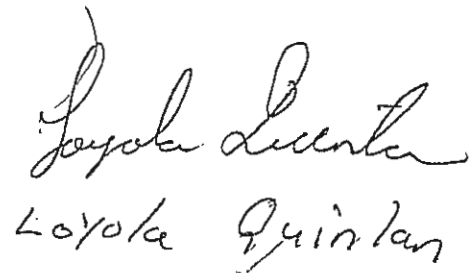 Loyola Quinlan
Loyola Quinlan